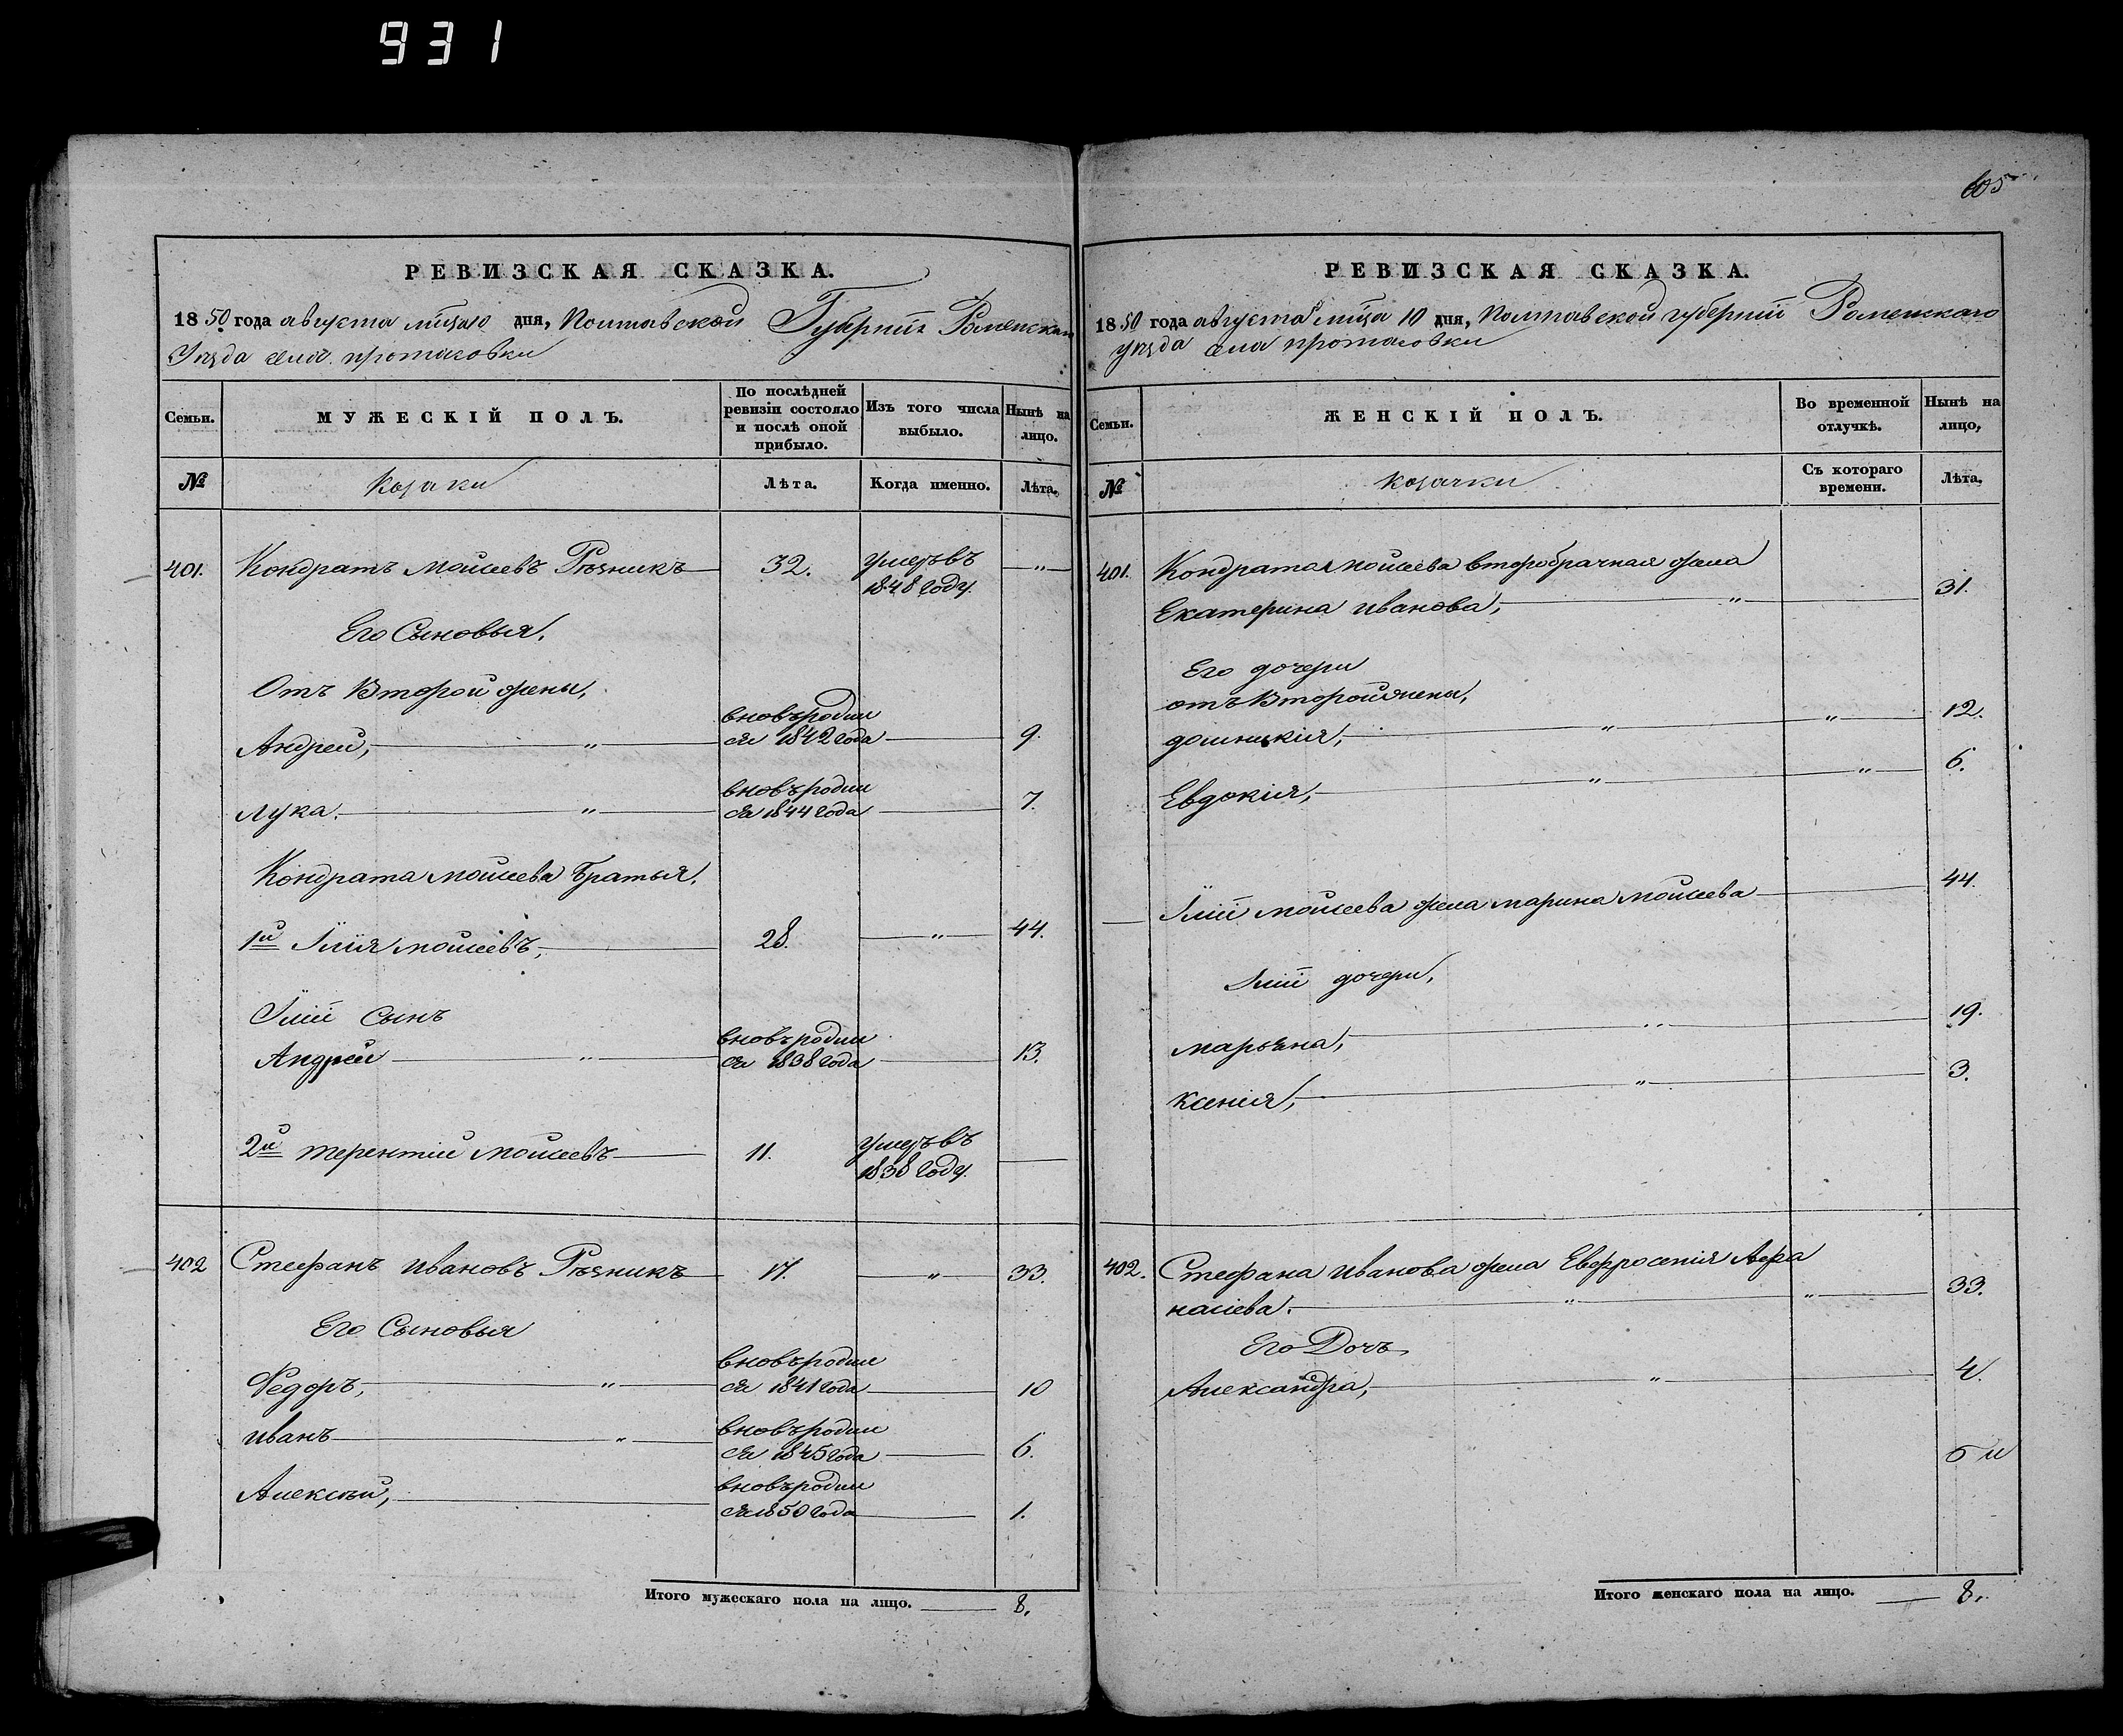 931
605
РЕВИЗСКАЯ СКАЗКА.
1850 года августа мца 10 дня, Полтавской Губерніи Роменскаго
Уѣзда села протасовки
Семьи. МУЖЕСКІЙ ПОЛЪ. По послѣдней ревизіи состояло и послѣ оной прибыло. Изъ того числа выбыло. Нынѣ на лицо.
№ козаки Лѣта. Когда именно. Лѣта.
401. Кондратъ моисеевъ Рѣзникъ 32. умеръ въ 1848 году. "
Его Сыновья,
Отъ Второй жены,
Андрей, " вновь родился 1842 года 9.
Лука. " вновь родился 1844 года 7.
Кондрата моисеева братья,
1й Илія моисеевъ, 28. " 44.
Иліи сынъ
Андрей " вновь родился 1838 года 13.
2й терентій моисеевъ 11. умеръ въ 1838 году.
402 Стефанъ ивановъ Рѣзникъ 17. " 33.
Его Сыновья
Федоръ, " вновь родился 1841 года 10
иванъ " вновь родился 1845 года 6.
Алексѣй, вновь родился 1850 года 1.
Итого мужескаго пола на лицо. 8.
РЕВИЗСКАЯ СКАЗКА.
1850 года августа мца 10 дня, Полтавской губерніи Роменскаго
уѣзда села протасовки
Семьи. ЖЕНСКІЙ ПОЛЪ. Во временной отлучкѣ. Нынѣ на лицо,
№ козачки Съ котораго времени. Лѣта.
401. Кондрата моисеева второбрачная жена
Екатерина иванова, " 31.
Его дочери
отъ Второй жены,
домникія, " " 12.
Евдокія, " " 6.
Иліи моисеева жена марина моисеева 44.
Иліи дочери,
марьяна, " 19.
ксенія, " 3.
402. Стефана иванова жена Евфросенія Афа
насіева. " " 33.
Его Дочь
Александра, " 4.
Итого женскаго пола на лицо. 8.